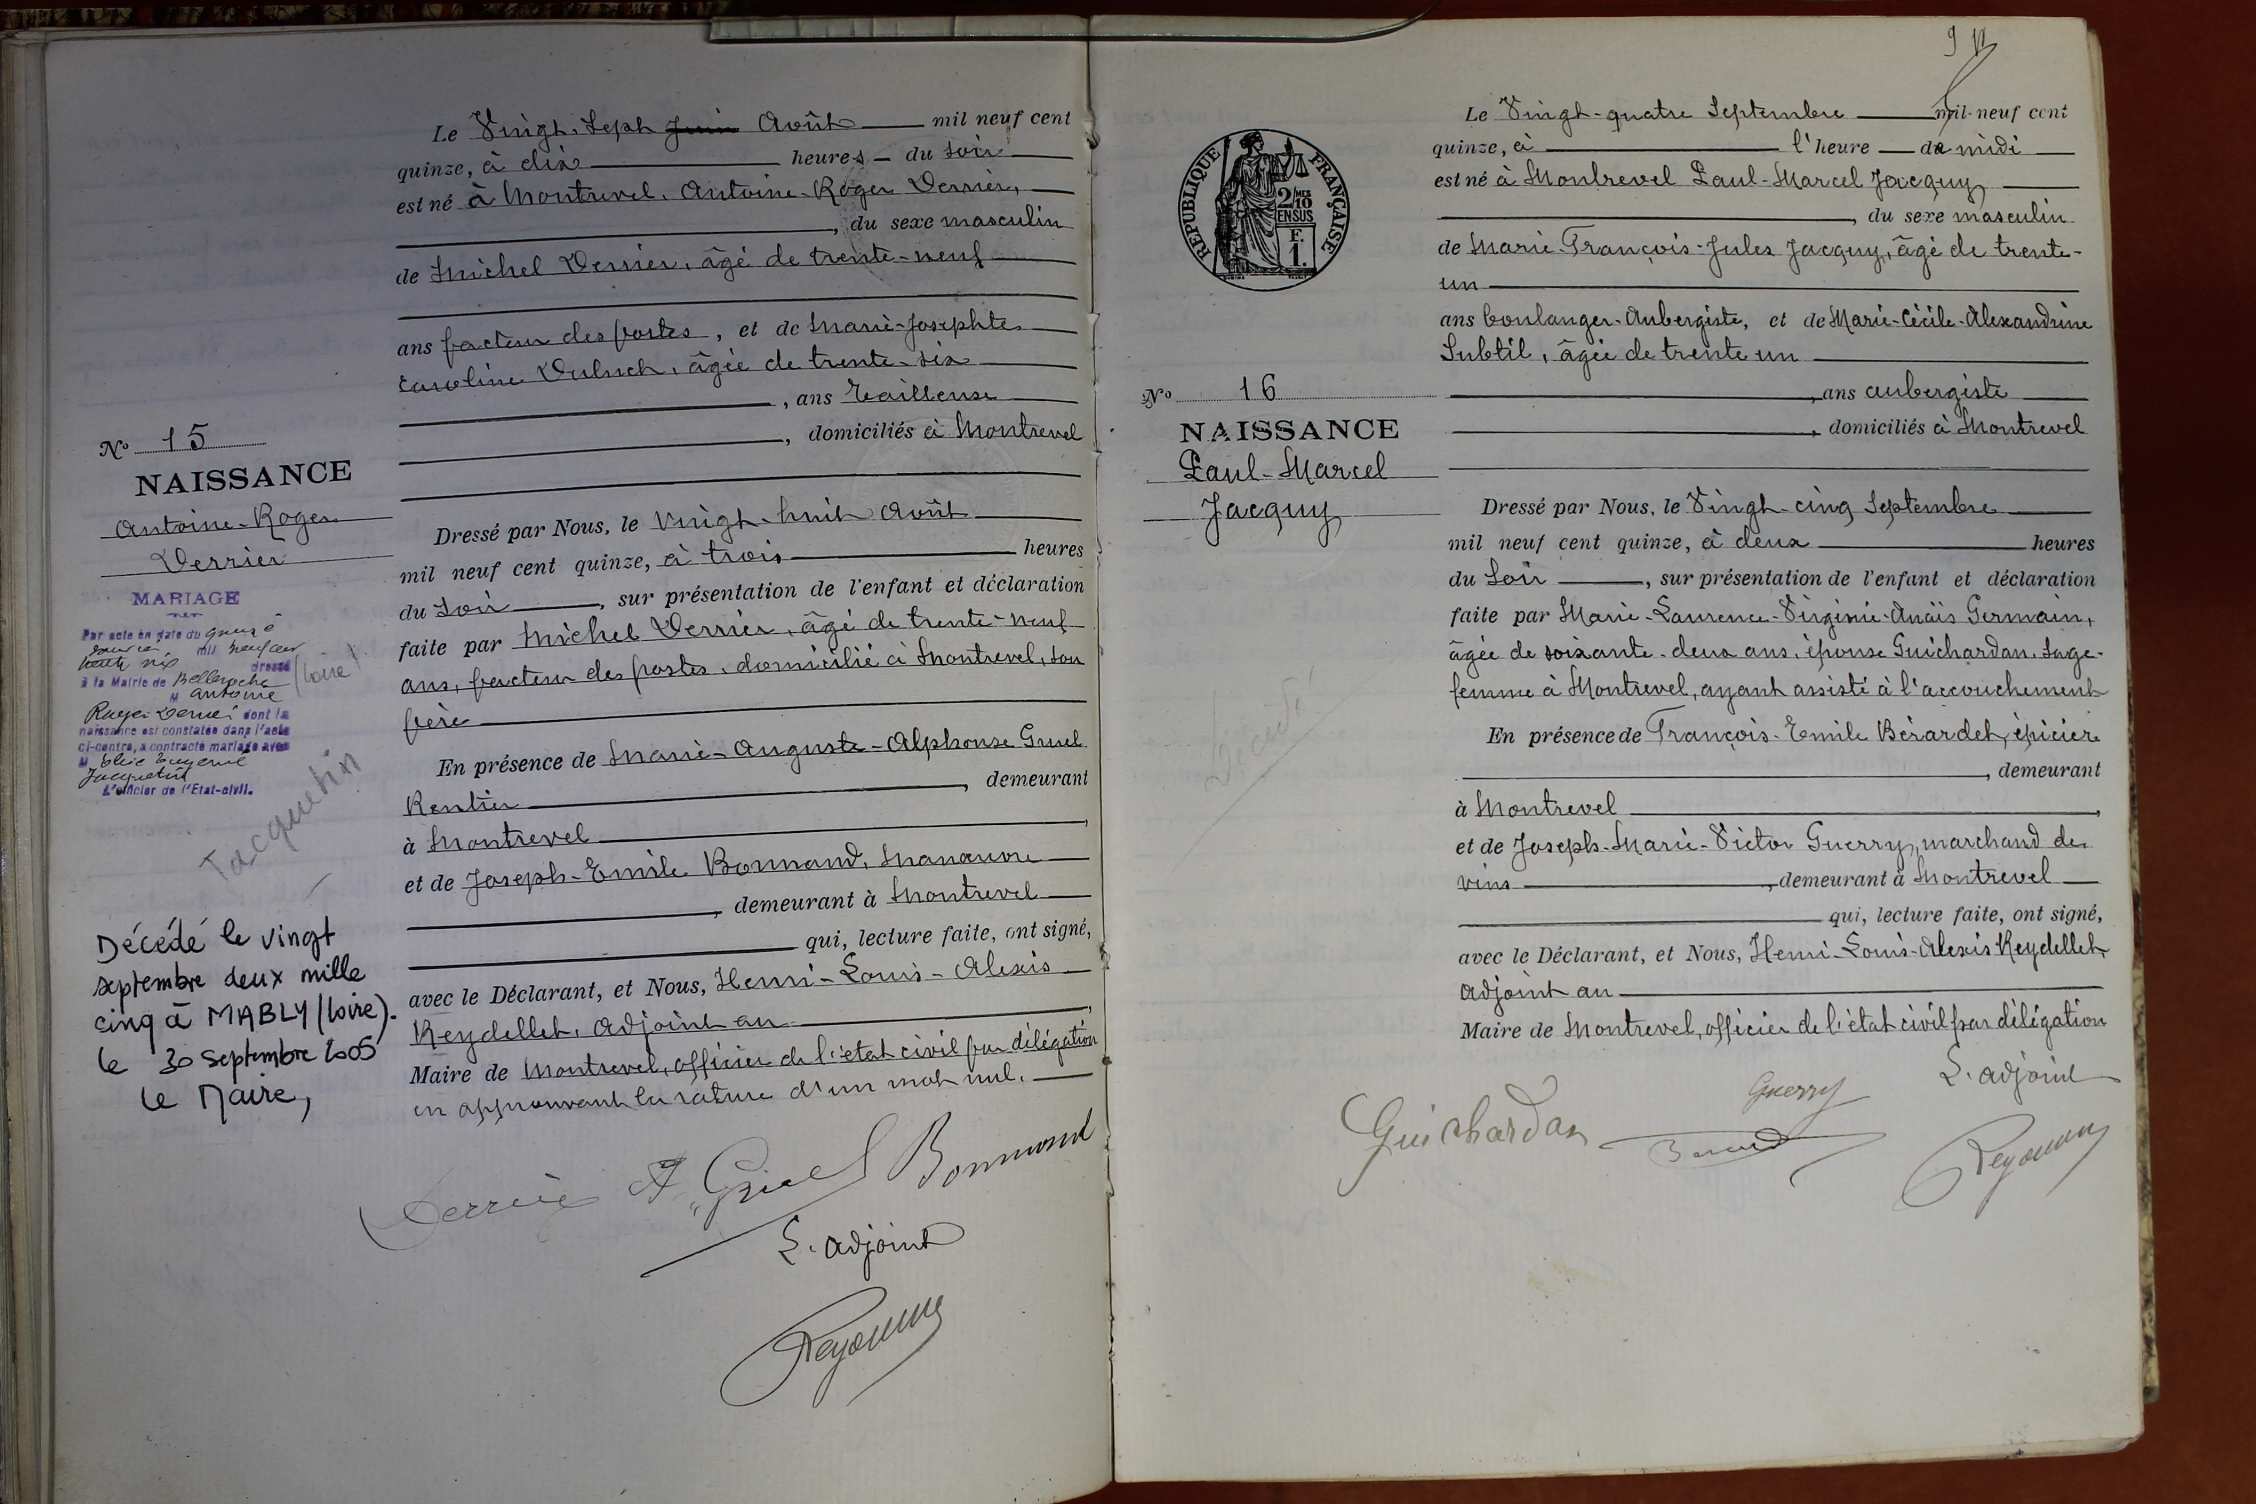 Le Vingt-Sept Juin Août mil neuf cent
quinze, à dix heures du soir
est né à Montrevel, Antoine-Roger Verrier,
, du sexe masculin
de Michel Verrier, âgé de trente-neuf
ans facteur des postes, et de Marie-Josephte
Caroline, âgée de trente-six
, ans tailleuse
, domiciliés à Montrevel
No 15
NAISSANCE
Antoine-Roger
Verrier
Dressé par Nous, le Vingt-huit Août
mil neuf cent quinze, à trois heures
du Soir, sur présentation de l'enfant et déclaration
faite par Michel Verrier, âgé de trente-neuf
ans, facteur des postes, domicilié à Montrevel, son
père
En présence de Marie-Auguste-Alphonse
Rentier, demeurant
à Montrevel,
et de Joseph-Emile Bonnand, Manœuvre
, demeurant à Montrevel
qui, lecture faite, ont signé,
avec le Déclarant, et Nous, Henri-Louis-Alexis
Reydellet, Adjoint au,
Maire de Montrevel, officier de l'état civil par délégation
en approuvant la rature d'un mot nul.
Verrier A. Bonnand
L'adjoint
MARIAGE
Par acte en date du quinze
janvier mil neuf cent
trente six dressé
à la Mairie de Belleroche (Loire)
M Antoine
Roger Verrier dont la
naissance est constatée dans l'acte
ci-contre, a contracté mariage avec
M Eugénie
Jacquetin
L'officier de l'Etat-civil.
Jacquetin
Décédé le vingt
septembre deux mille
cinq à MABLY (Loire).
le 30 septembre 2005
Le Maire,
9
Le Vingt-quatre Septembre mil-neuf cent
quinze, à l'heure de midi
est né à Montrevel Paul-Marcel Jacquy
, du sexe masculin
de Marie-François-Jules Jacquy, âgé de trente-
un
ans boulanger-Aubergiste, et de Marie-Cécile-Alexandrine
Subtil, âgée de trente un
, ans aubergiste
, domiciliés à Montrevel
RÉPUBLIQUE FRANÇAISE
2/10 MES
EN SUS
F.
1.
No 16
NAISSANCE
Paul-Marcel
Jacquy
Décédé
Dressé par Nous, le Vingt-cinq Septembre
mil neuf cent quinze, à deux heures
du Soir, sur présentation de l'enfant et déclaration
faite par Marie-Laurence-Virginie-Anaïs Germain,
âgée de soixante-deux ans, épouse Guichardan, Sage-
femme à Montrevel, ayant assisté à l'accouchement
En présence de François-Emile Bérardet, épicier
, demeurant
à Montrevel,
et de Joseph-Marie-Victor Guerry, marchand de
vins, demeurant à Montrevel
qui, lecture faite, ont signé,
avec le Déclarant, et Nous, Henri-Louis-Alexis Reydellet,
Adjoint au
Maire de Montrevel, officier de l'état civil par délégation
L'adjoint
Guichardan
Guerry